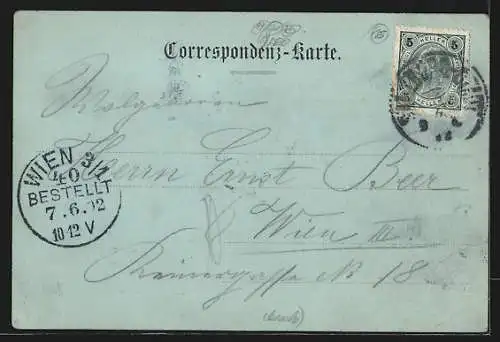 Correspondenz-Karte.
5 HELLER 5
Wolgeboren
Herrn Ernst Beer
Wien III.
Reinergasse No 18
WIEN 3/1
40
BESTELLT
7.6.02
10-12 V